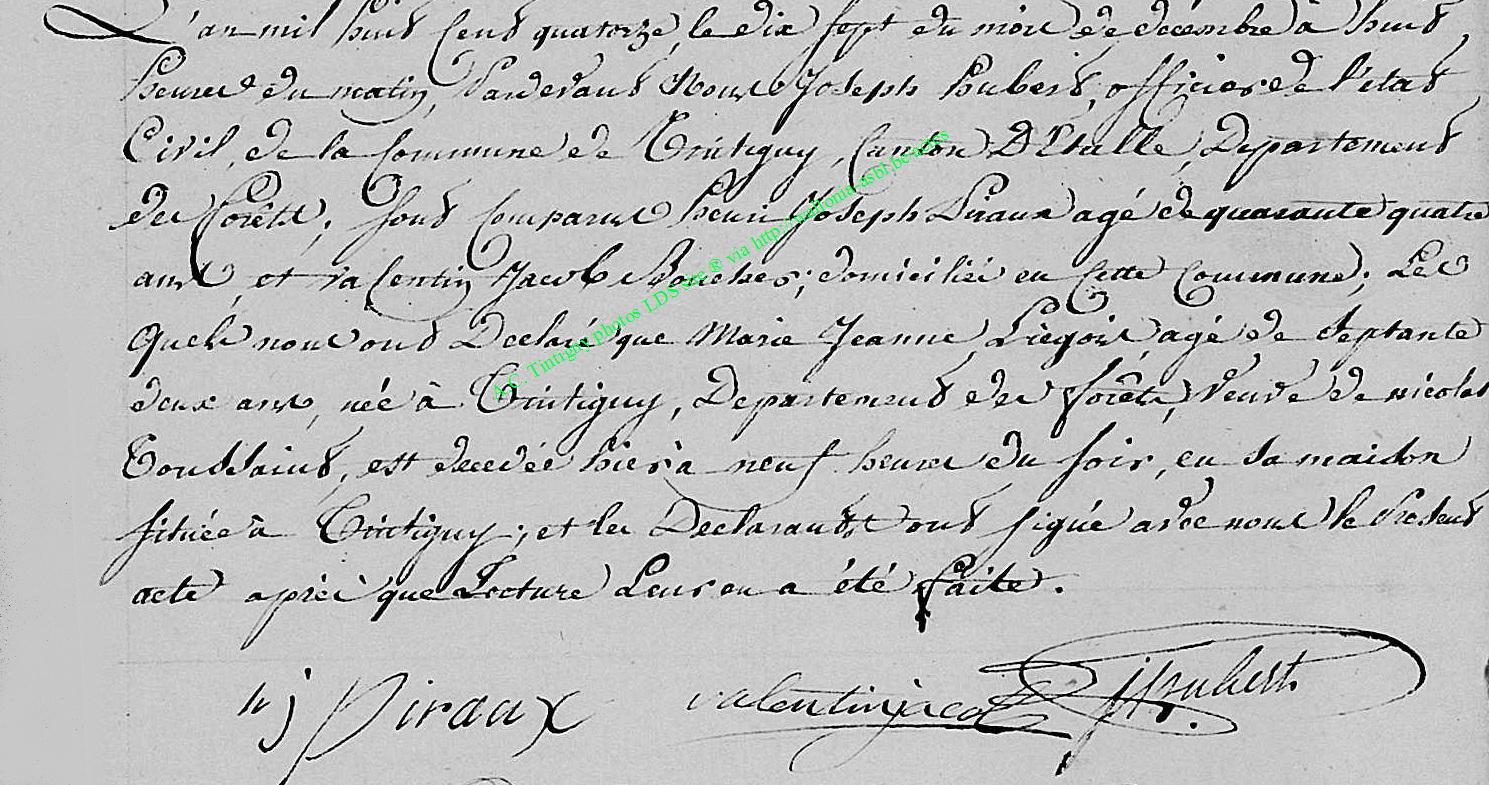 L'an mil huit Cent quatorze, le dix sept du mois de décembre à huit
heures du matin, Pardevant Nous Joseph hubert, officier de l'état
Civil, de la Commune de Tintigny, Canton D'Etalle, Departement
des forêts, sont Comparus henri Joseph Piraux agé de quarante quatre
ans, et valentin Jacob, domiciliés en Cette Commune; Les
quels nous ont Declaré que Marie Jeanne Liegois, agé de septante
deux ans, née à Tintigny, Departement des forêts, veuve de nicolas
Toussaint, est decedée hier à neuf heures du soir, en sa maison
située à Tintigny; et les Declarants ont signé avec nous le Present
acte après que Lecture Leur en a été faite.
hj Piraux valentin jacob JHubert
A.C. Tintigny photos LDS ® via http://wallonia-asbl.be